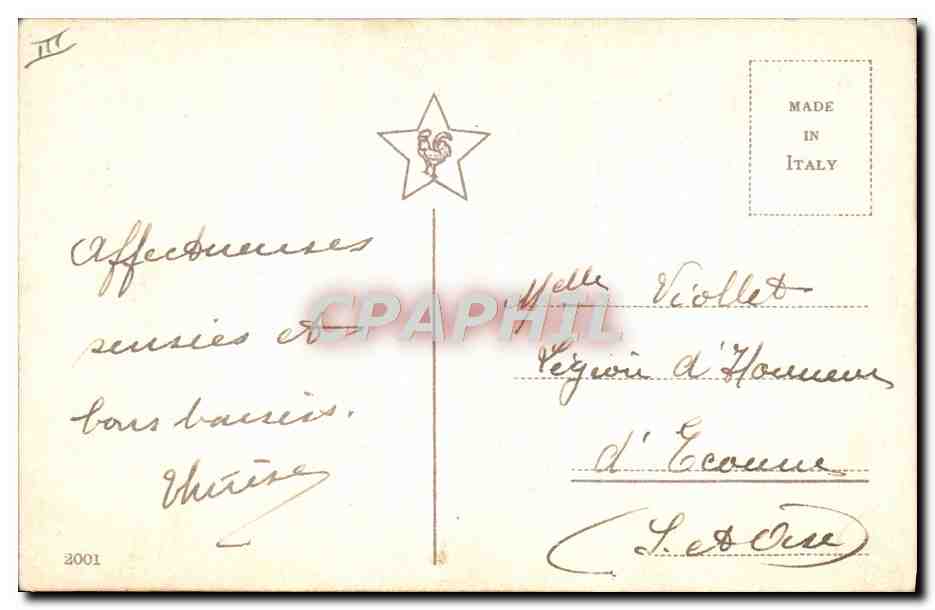 III
MADE
IN
ITALY
Affectueuses
pensées et
bons baisers.
Thérèse
2001
CPAPHIL
Melle Viollet
Légion d'Honneur
d'Ecouen
(S. et Oise)